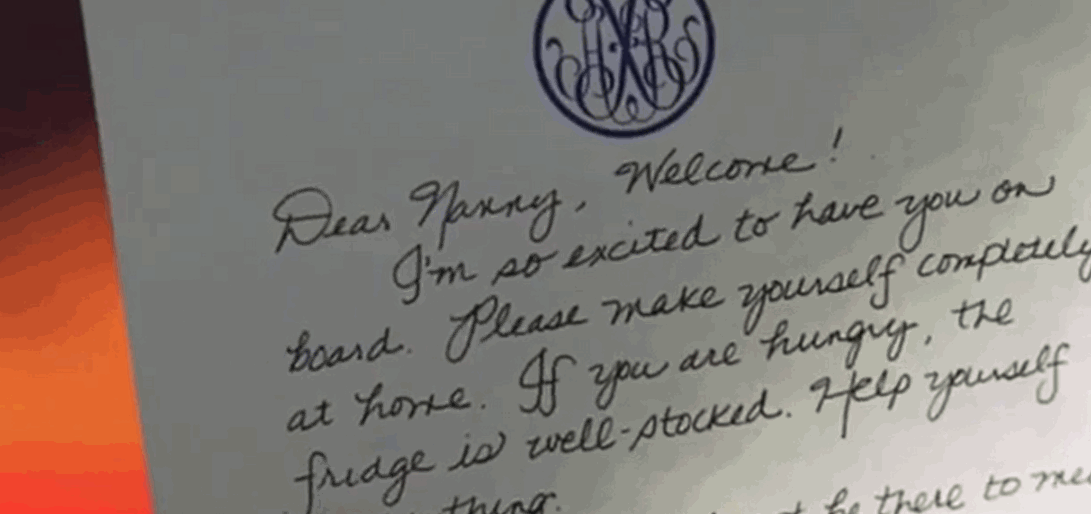 Dear Nanny, Welcome!
I'm so excited to have you on
board. Please make yourself completely
at home. If you are hungry, the
fridge is well-stocked. Help yourself
thing.
be there to me